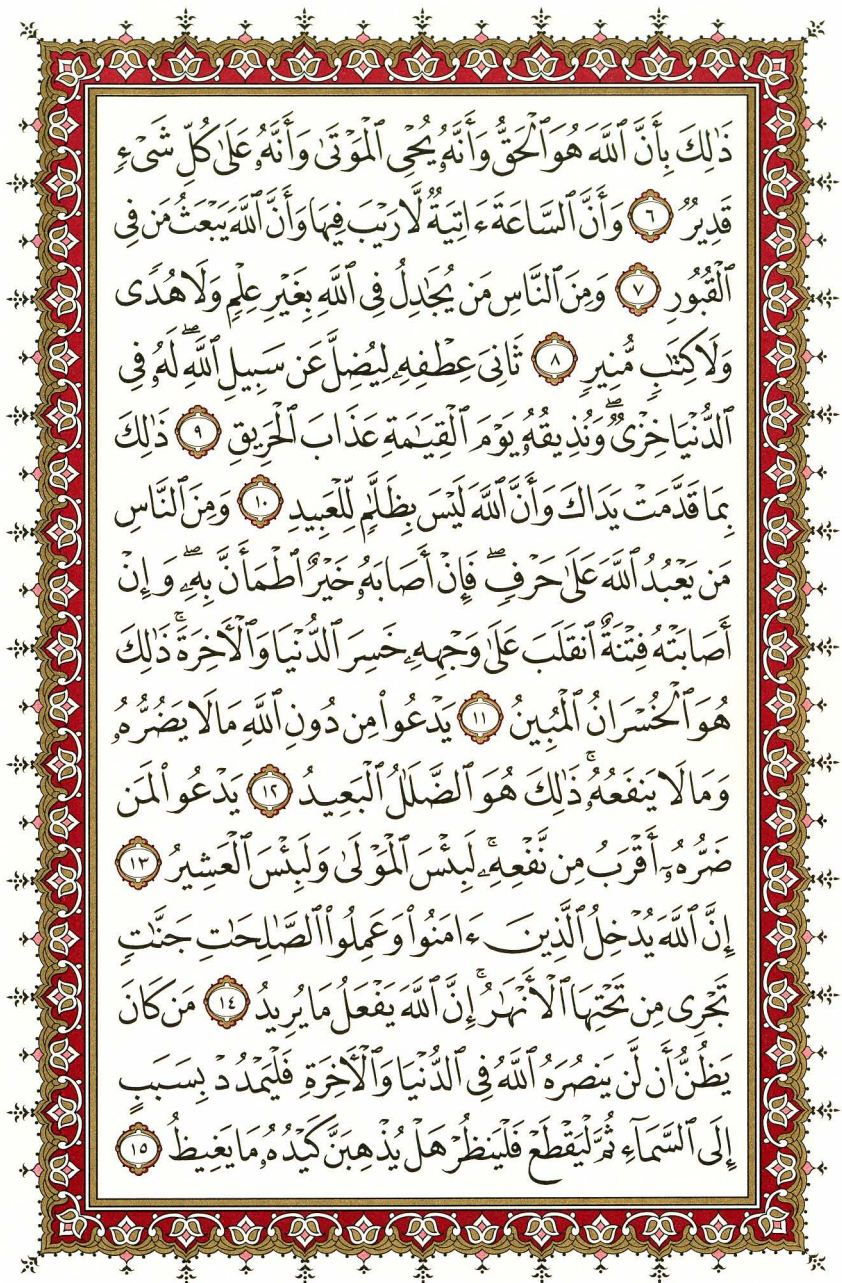 ذَٰلِكَ بِأَنَّ ٱللَّهَ هُوَ ٱلْحَقُّ وَأَنَّهُۥ يُحْىِ ٱلْمَوْتَىٰ وَأَنَّهُۥ عَلَىٰ كُلِّ شَىْءٍ
قَدِيرٌ ٦ وَأَنَّ ٱلسَّاعَةَ ءَاتِيَةٌ لَّا رَيْبَ فِيهَا وَأَنَّ ٱللَّهَ يَبْعَثُ مَن فِى
ٱلْقُبُورِ ٧ وَمِنَ ٱلنَّاسِ مَن يُجَٰدِلُ فِى ٱللَّهِ بِغَيْرِ عِلْمٍ وَلَا هُدًى
وَلَا كِتَٰبٍ مُّنِيرٍ ٨ ثَانِىَ عِطْفِهِۦ لِيُضِلَّ عَن سَبِيلِ ٱللَّهِۖ لَهُۥ فِى
ٱلدُّنْيَا خِزْىٌۖ وَنُذِيقُهُۥ يَوْمَ ٱلْقِيَٰمَةِ عَذَابَ ٱلْحَرِيقِ ٩ ذَٰلِكَ
بِمَا قَدَّمَتْ يَدَاكَ وَأَنَّ ٱللَّهَ لَيْسَ بِظَلَّٰمٍ لِّلْعَبِيدِ ١٠ وَمِنَ ٱلنَّاسِ
مَن يَعْبُدُ ٱللَّهَ عَلَىٰ حَرْفٍۖ فَإِنْ أَصَابَهُۥ خَيْرٌ ٱطْمَأَنَّ بِهِۦۖ وَإِنْ
أَصَابَتْهُ فِتْنَةٌ ٱنقَلَبَ عَلَىٰ وَجْهِهِۦ خَسِرَ ٱلدُّنْيَا وَٱلْأَخِرَةَۚ ذَٰلِكَ
هُوَ ٱلْخُسْرَانُ ٱلْمُبِينُ ١١ يَدْعُوا۟ مِن دُونِ ٱللَّهِ مَا لَا يَضُرُّهُۥ
وَمَا لَا يَنفَعُهُۥۚ ذَٰلِكَ هُوَ ٱلضَّلَٰلُ ٱلْبَعِيدُ ١٢ يَدْعُوا۟ لَمَن
ضَرُّهُۥٓ أَقْرَبُ مِن نَّفْعِهِۦۚ لَبِئْسَ ٱلْمَوْلَىٰ وَلَبِئْسَ ٱلْعَشِيرُ ١٣
إِنَّ ٱللَّهَ يُدْخِلُ ٱلَّذِينَ ءَامَنُوا۟ وَعَمِلُوا۟ ٱلصَّٰلِحَٰتِ جَنَّٰتٍ
تَجْرِى مِن تَحْتِهَا ٱلْأَنْهَٰرُۚ إِنَّ ٱللَّهَ يَفْعَلُ مَا يُرِيدُ ١٤ مَن كَانَ
يَظُنُّ أَن لَّن يَنصُرَهُ ٱللَّهُ فِى ٱلدُّنْيَا وَٱلْأَخِرَةِ فَلْيَمْدُدْ بِسَبَبٍ
إِلَى ٱلسَّمَآءِ ثُمَّ لْيَقْطَعْ فَلْيَنظُرْ هَلْ يُذْهِبَنَّ كَيْدُهُۥ مَا يَغِيظُ ١٥